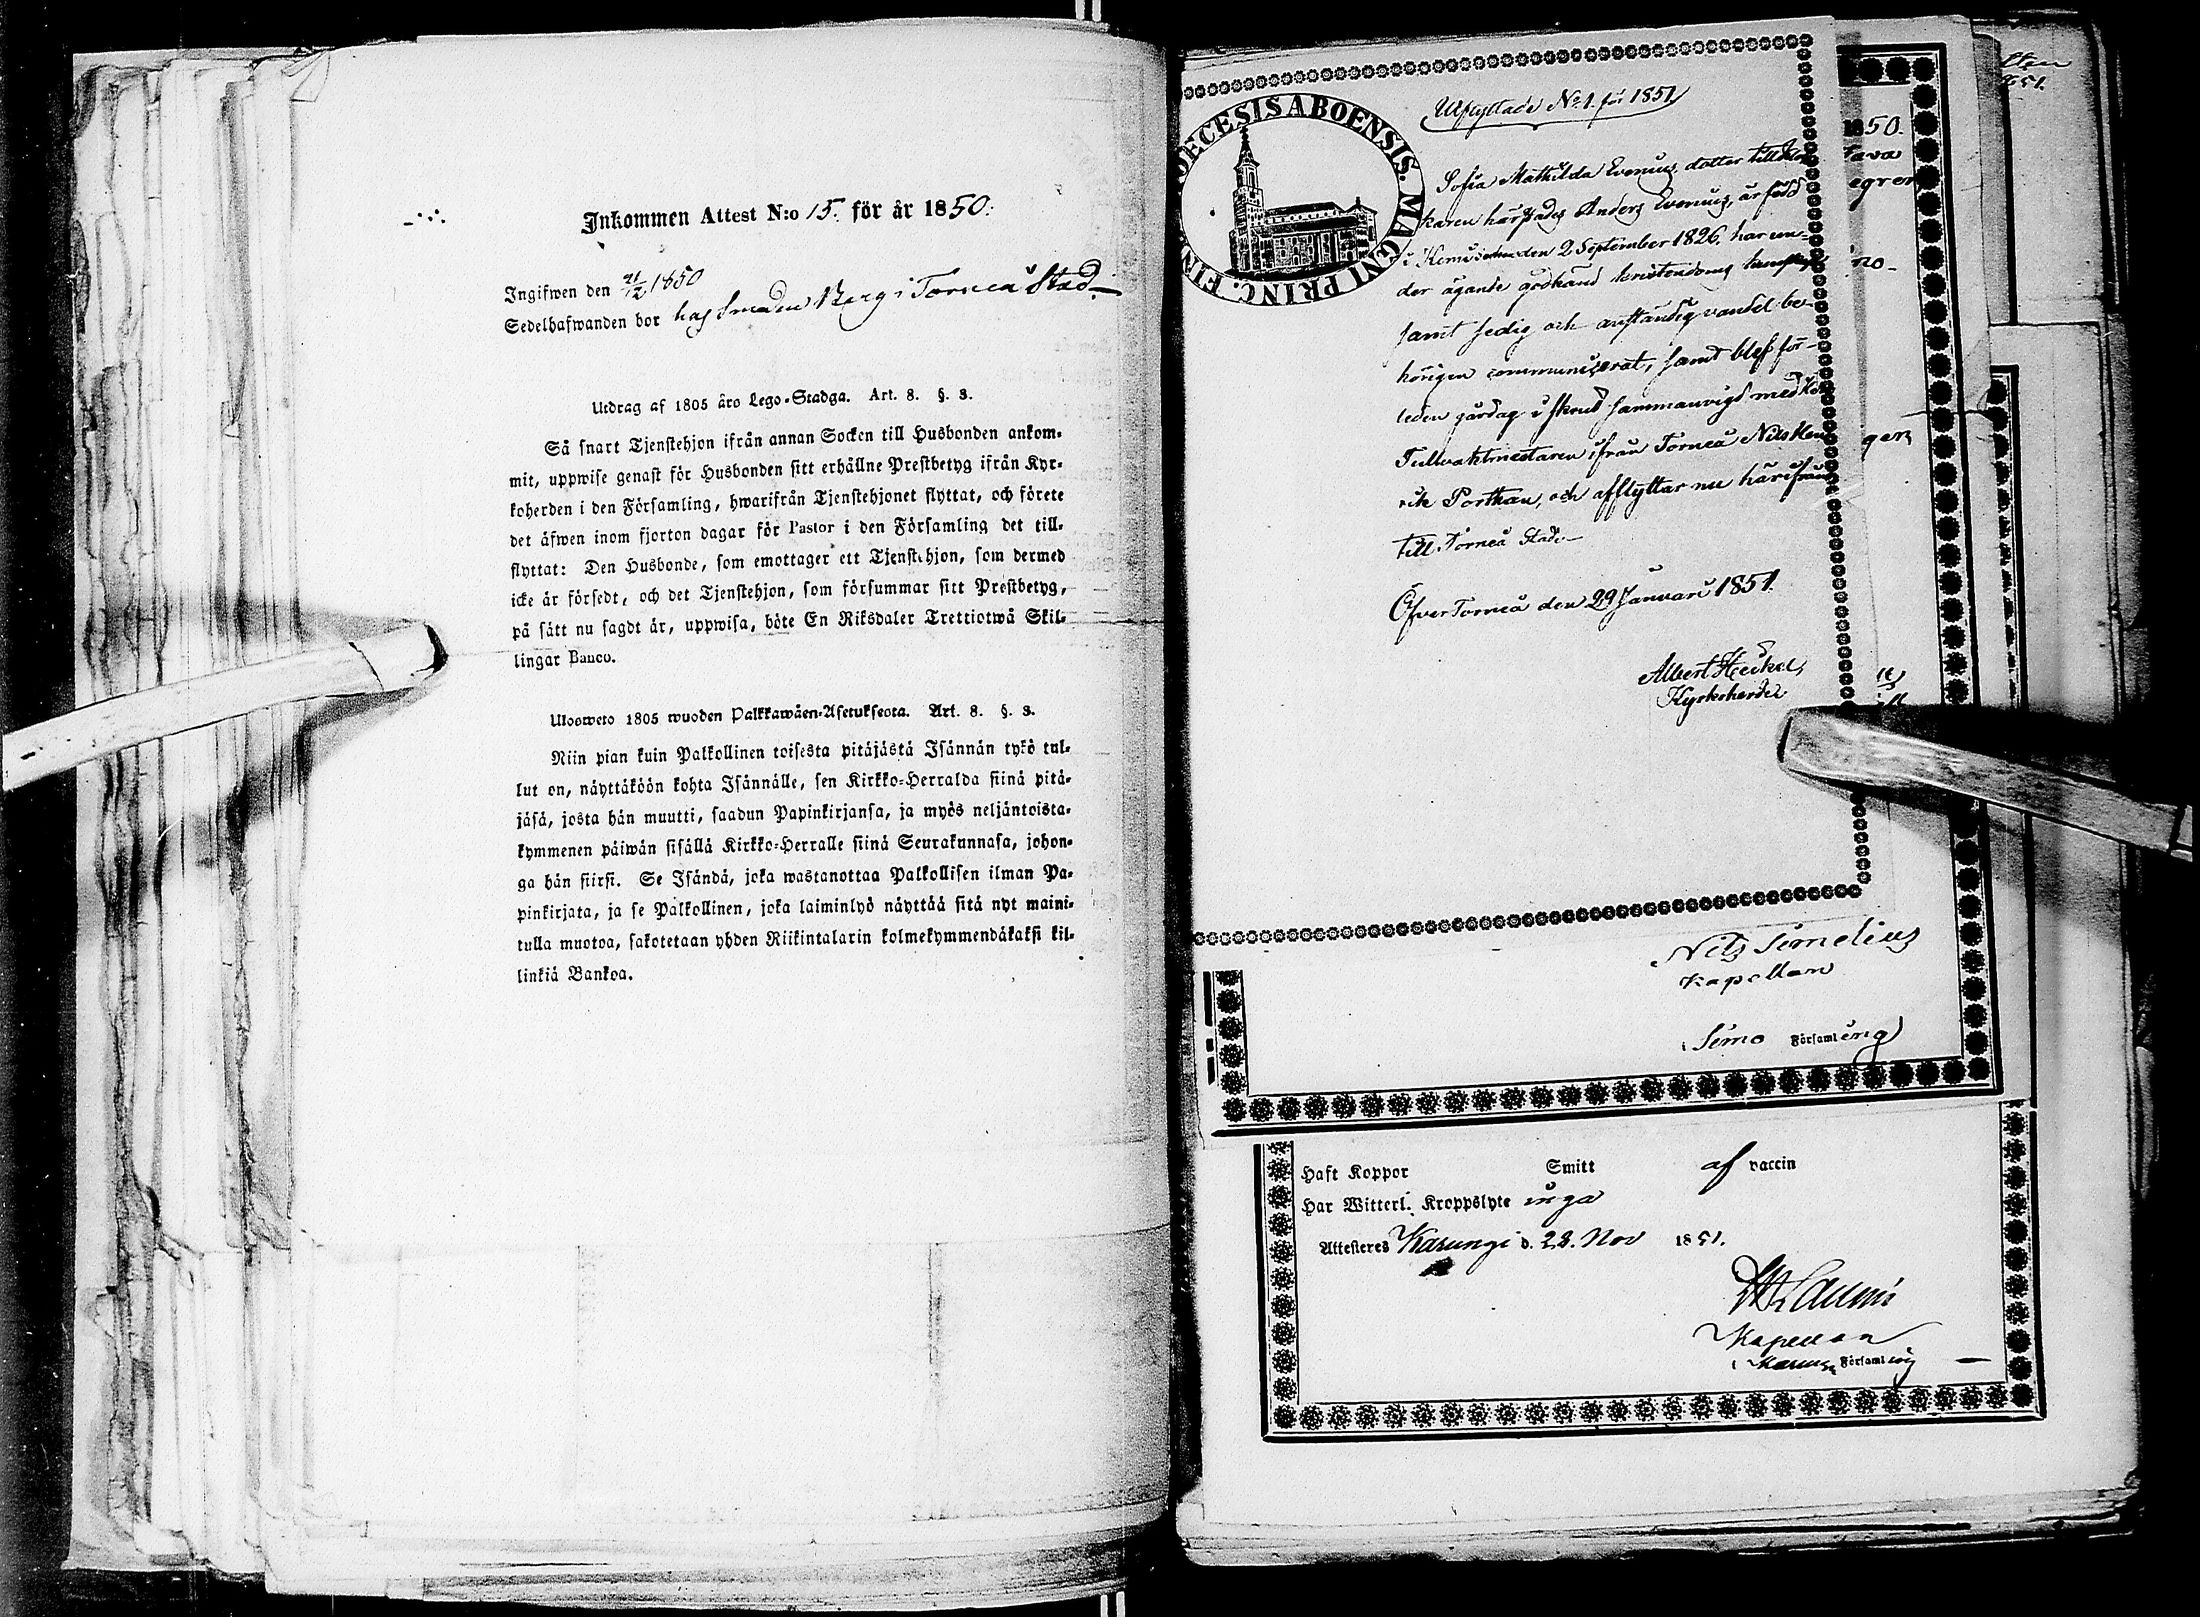 Inkommen Attest N:o 15. för år 1850.
Ingifwen den 21/12 1850
Sedelhafwanden bor hos Smeden Berg i Torneå Stad.
Utdrag af 1805 års Lego-Stadga. Art. 8. §. 3.
Så snart Tjenstehjon ifrån annan Socken till Husbonden ankom-
mit, uppwise genast för Husbonden sitt erhållne Prestbetyg ifrån Kyr-
koherden i den Församling, hwarifrån Tjenstehjonet flyttat, och förete
det äfwen inom fjorton dagar för Pastor i den Församling det till-
flyttat: Den Husbonde, som emottager ett Tjenstehjon, som dermed
icke är försedt, och det Tjenstehjon, som försummar sitt Prestbetyg,
på sätt nu sagdt är, uppwisa, böte En Riksdaler Trettiotwå Skil-
lingar Banco.
Ulosweto 1805 wuoden Palkkawäen-Asetuksesta. Art. 8. §. 3.
Niin pian kuin Palkollinen toisesta pitäjästä Isännän tykö tul-
lut on, näyttäköön kohta Isännälle, sen Kirkko-Herralda siinä pitä-
jäsä, josta hän muutti, saadun Papinkirjansa, ja myös neljäntoista-
kymmenen päiwän sisällä Kirkko-Herralle siinä Seurakunnasa, johon-
ga hän siirsi. Se Isändä, joka wastanottaa Palkollisen ilman Pa-
pinkirjata, ja se Palkollinen, joka laiminlyö näyttää sitä nyt maini-
tulla muotoa, sakotetaan yhden Riikintalarin kolmekymmendäkaksi kil-
linkiä Bankoa.
OECESIS ABOENSIS. MAGNI PRINC. FIN
Utflyttade No 1. för 1851
Sofia Mathilda Evenius, dotter till Kloc-
karen härstädes Anders Evenius, är född
i Kemi socken den 2 September 1826, har un-
der ägande godkänd kristendoms kunskap
samt sedig och anständig vandel be-
hörigen communicerat, samt blef för-
leden gårdag i skrud sammanvigd med
Tullvaktmästaren ifrån Torneå Nils Hen-
rik Porthan, och afflyttar nu härifrån
till Torneå Stad.
ÖfverTorneå den 29 Januari 1851.
Albert Heikel,
Kyrkoherde
1850.
851.
Nils Simelius
Kapellan
i Simo Församling
Haft Koppor Smitt af vaccin
Har Witterl. Kroppslyte inga
Attesteres Karungi d. 28. Nov 1851.
Kapellan
i Karungi Församling